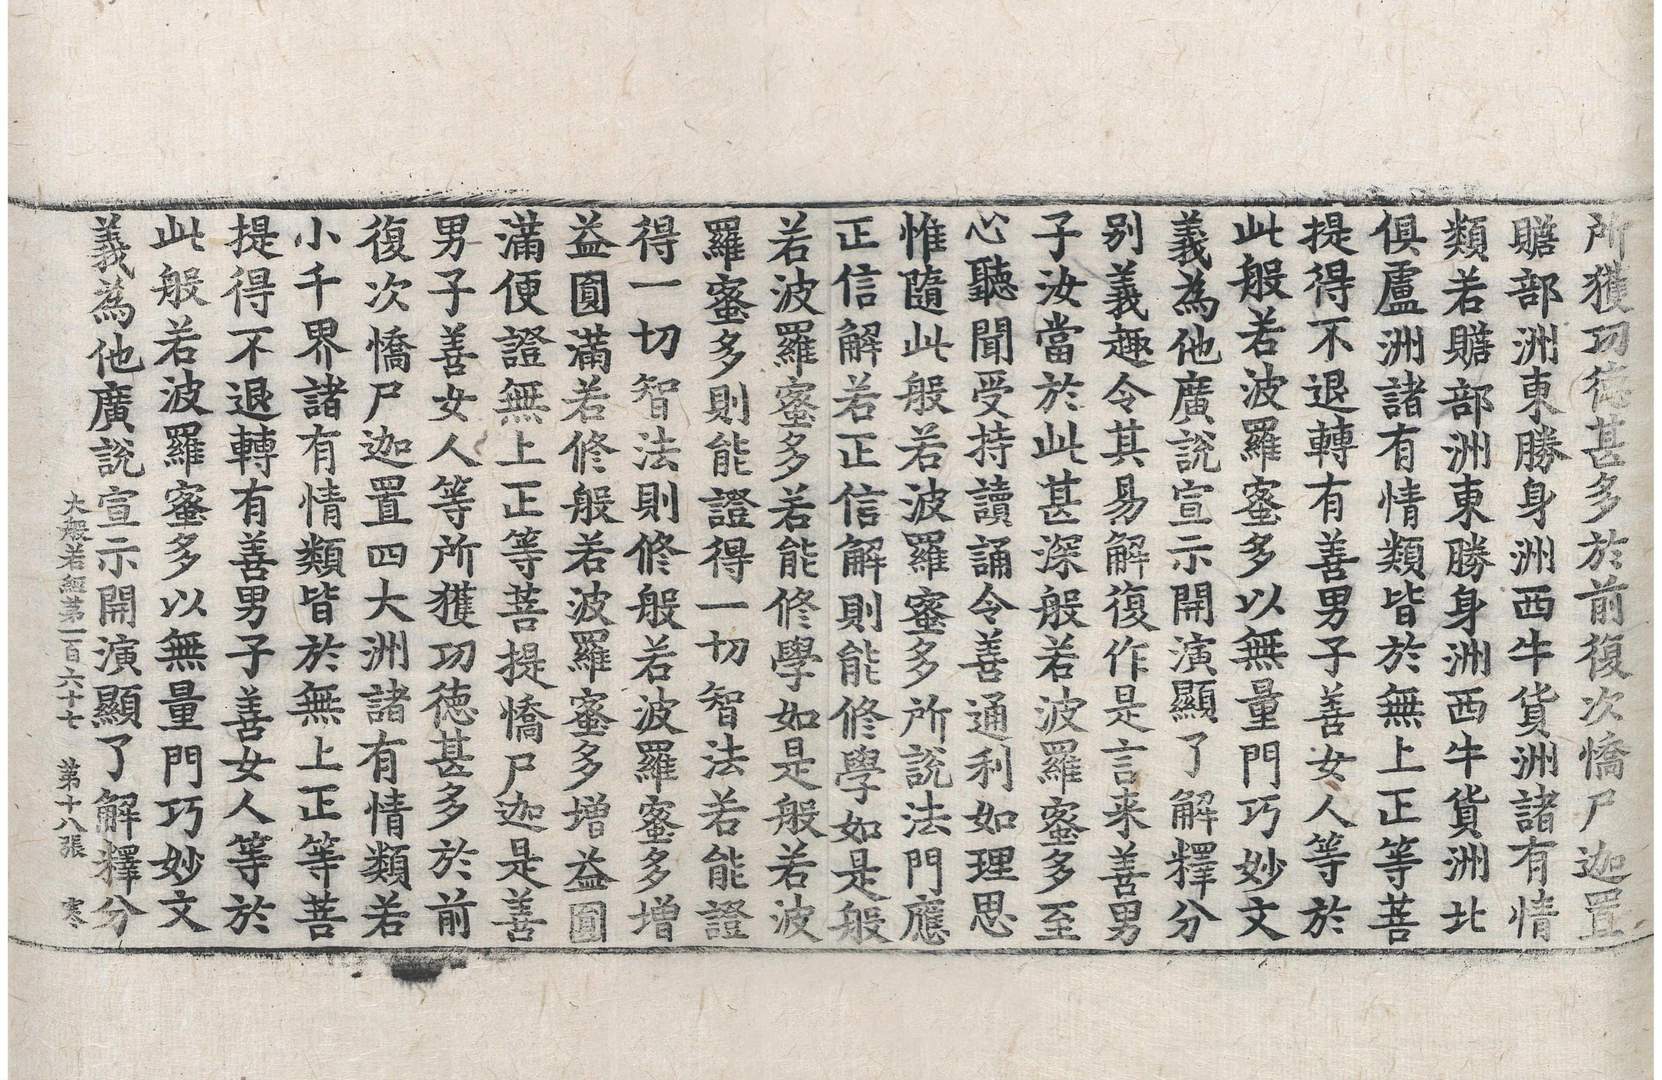 所獲功德甚多於前復次憍尸迦置
贍部洲東勝身洲西牛貨洲諸有情
類若贍部洲東勝身洲西牛貨洲北
俱盧洲諸有情類皆於無上正等菩
提得不退轉有善男子善女人等於
此般若波羅蜜多以無量門巧妙文
義為他廣說宣示開演顯了解釋分
別義趣令其易解復作是言来善男
子汝當於此甚深般若波羅蜜多至
心聽聞受持讀誦令善通利如理思
惟隨此般若波羅蜜多所說法門應
正信解若正信解則能修學如是般
若波羅蜜多若能修學如是般若波
羅蜜多則能證得一切智法若能證
得一切智法則修般若波羅蜜多增
益圓滿若修般若波羅蜜多增益圓
滿便證無上正等菩提憍尸迦是善
男子善女人等所獲功德甚多於前
復次憍尸迦置四大洲諸有情類若
小千界諸有情類皆於無上正等菩
提得不退轉有善男子善女人等於
此般若波羅蜜多以無量門巧妙文
義為他廣說宣示開演顯了解釋分
大般若經第一百六十七 第十八張 寒